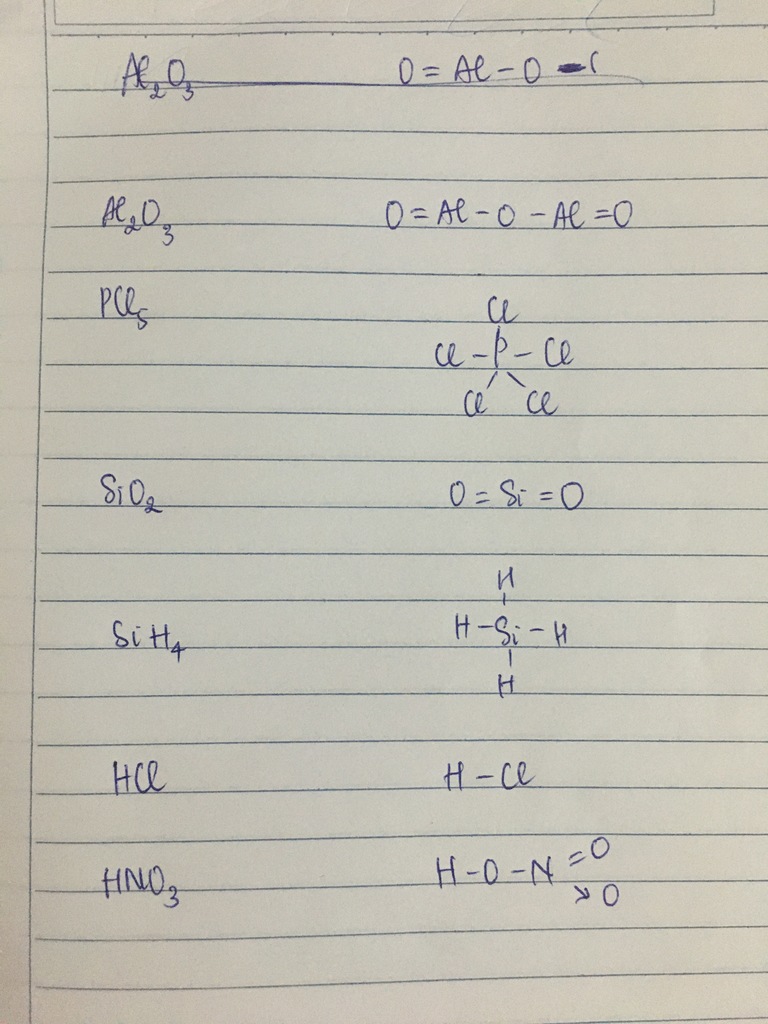 Al₂O₃ O = Al - O - (
Al₂O₃ O = Al - O - Al = O
PCl₅
Cl
Cl - P - Cl
Cl Cl
SiO₂ O = Si = O
H
SiH₄ H - Si - H
H
HCl H - Cl
HNO₃ H - O - N = O
↘ O